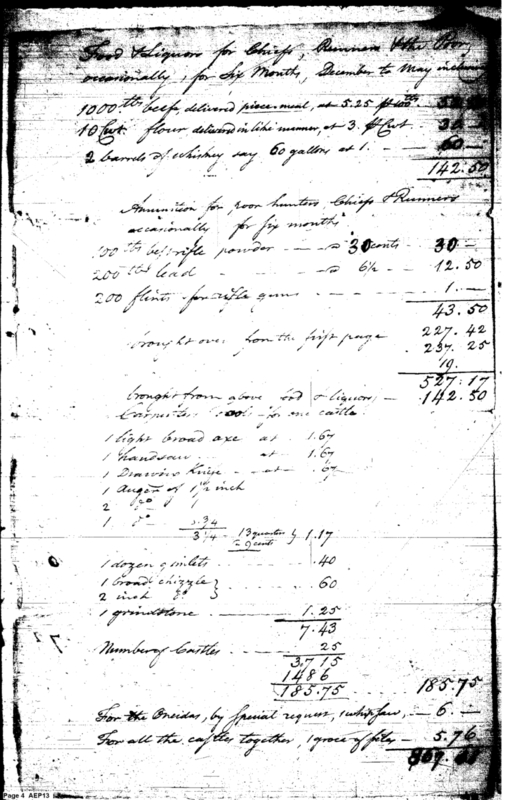 Food & Liquors for Chiefs, Runners & the Poor,
occasionally, for Six Months, December to May
1000 lbs beef, deliverd piece-meal, at 5.25
10 Cwt. flour deliverd in like manner, at 3. Cwt. 30
2 barrels of whiskey say 60 gallons at 1. — 60 —
142.50
Amunition for poor hunters, Chiefs & Runners
occasionally for six months
100 lbs best rifle powder — 30 cents 30 —
200 lbs lead — 6¼ — 12.50
200 flints for rifle guns — 1. —
43.50
brought over from the first page 227.42
237.25
19.
527.17
brought from above food & liquors 142.50
Carpenters tools for one castle
1 light broad axe at 1.67
1 handsaw at 1.67
1 Drawing Knife at .67
1 Auger of 1½ inch
2 do
1 do
3¼ 13 quarters 9 cents } 1.17
1 dozen gimlets .40
1 broad chizzle }
2 inch do } .60
1 grindstone 1.25
7.43
Number of Castles 25
3715
1486
185.75 185.75
For the Oneidas, by special request, 1 whip saw, — 6. —
For all the castles together, 1 groce of files — 5.76
Page 4 AEP13